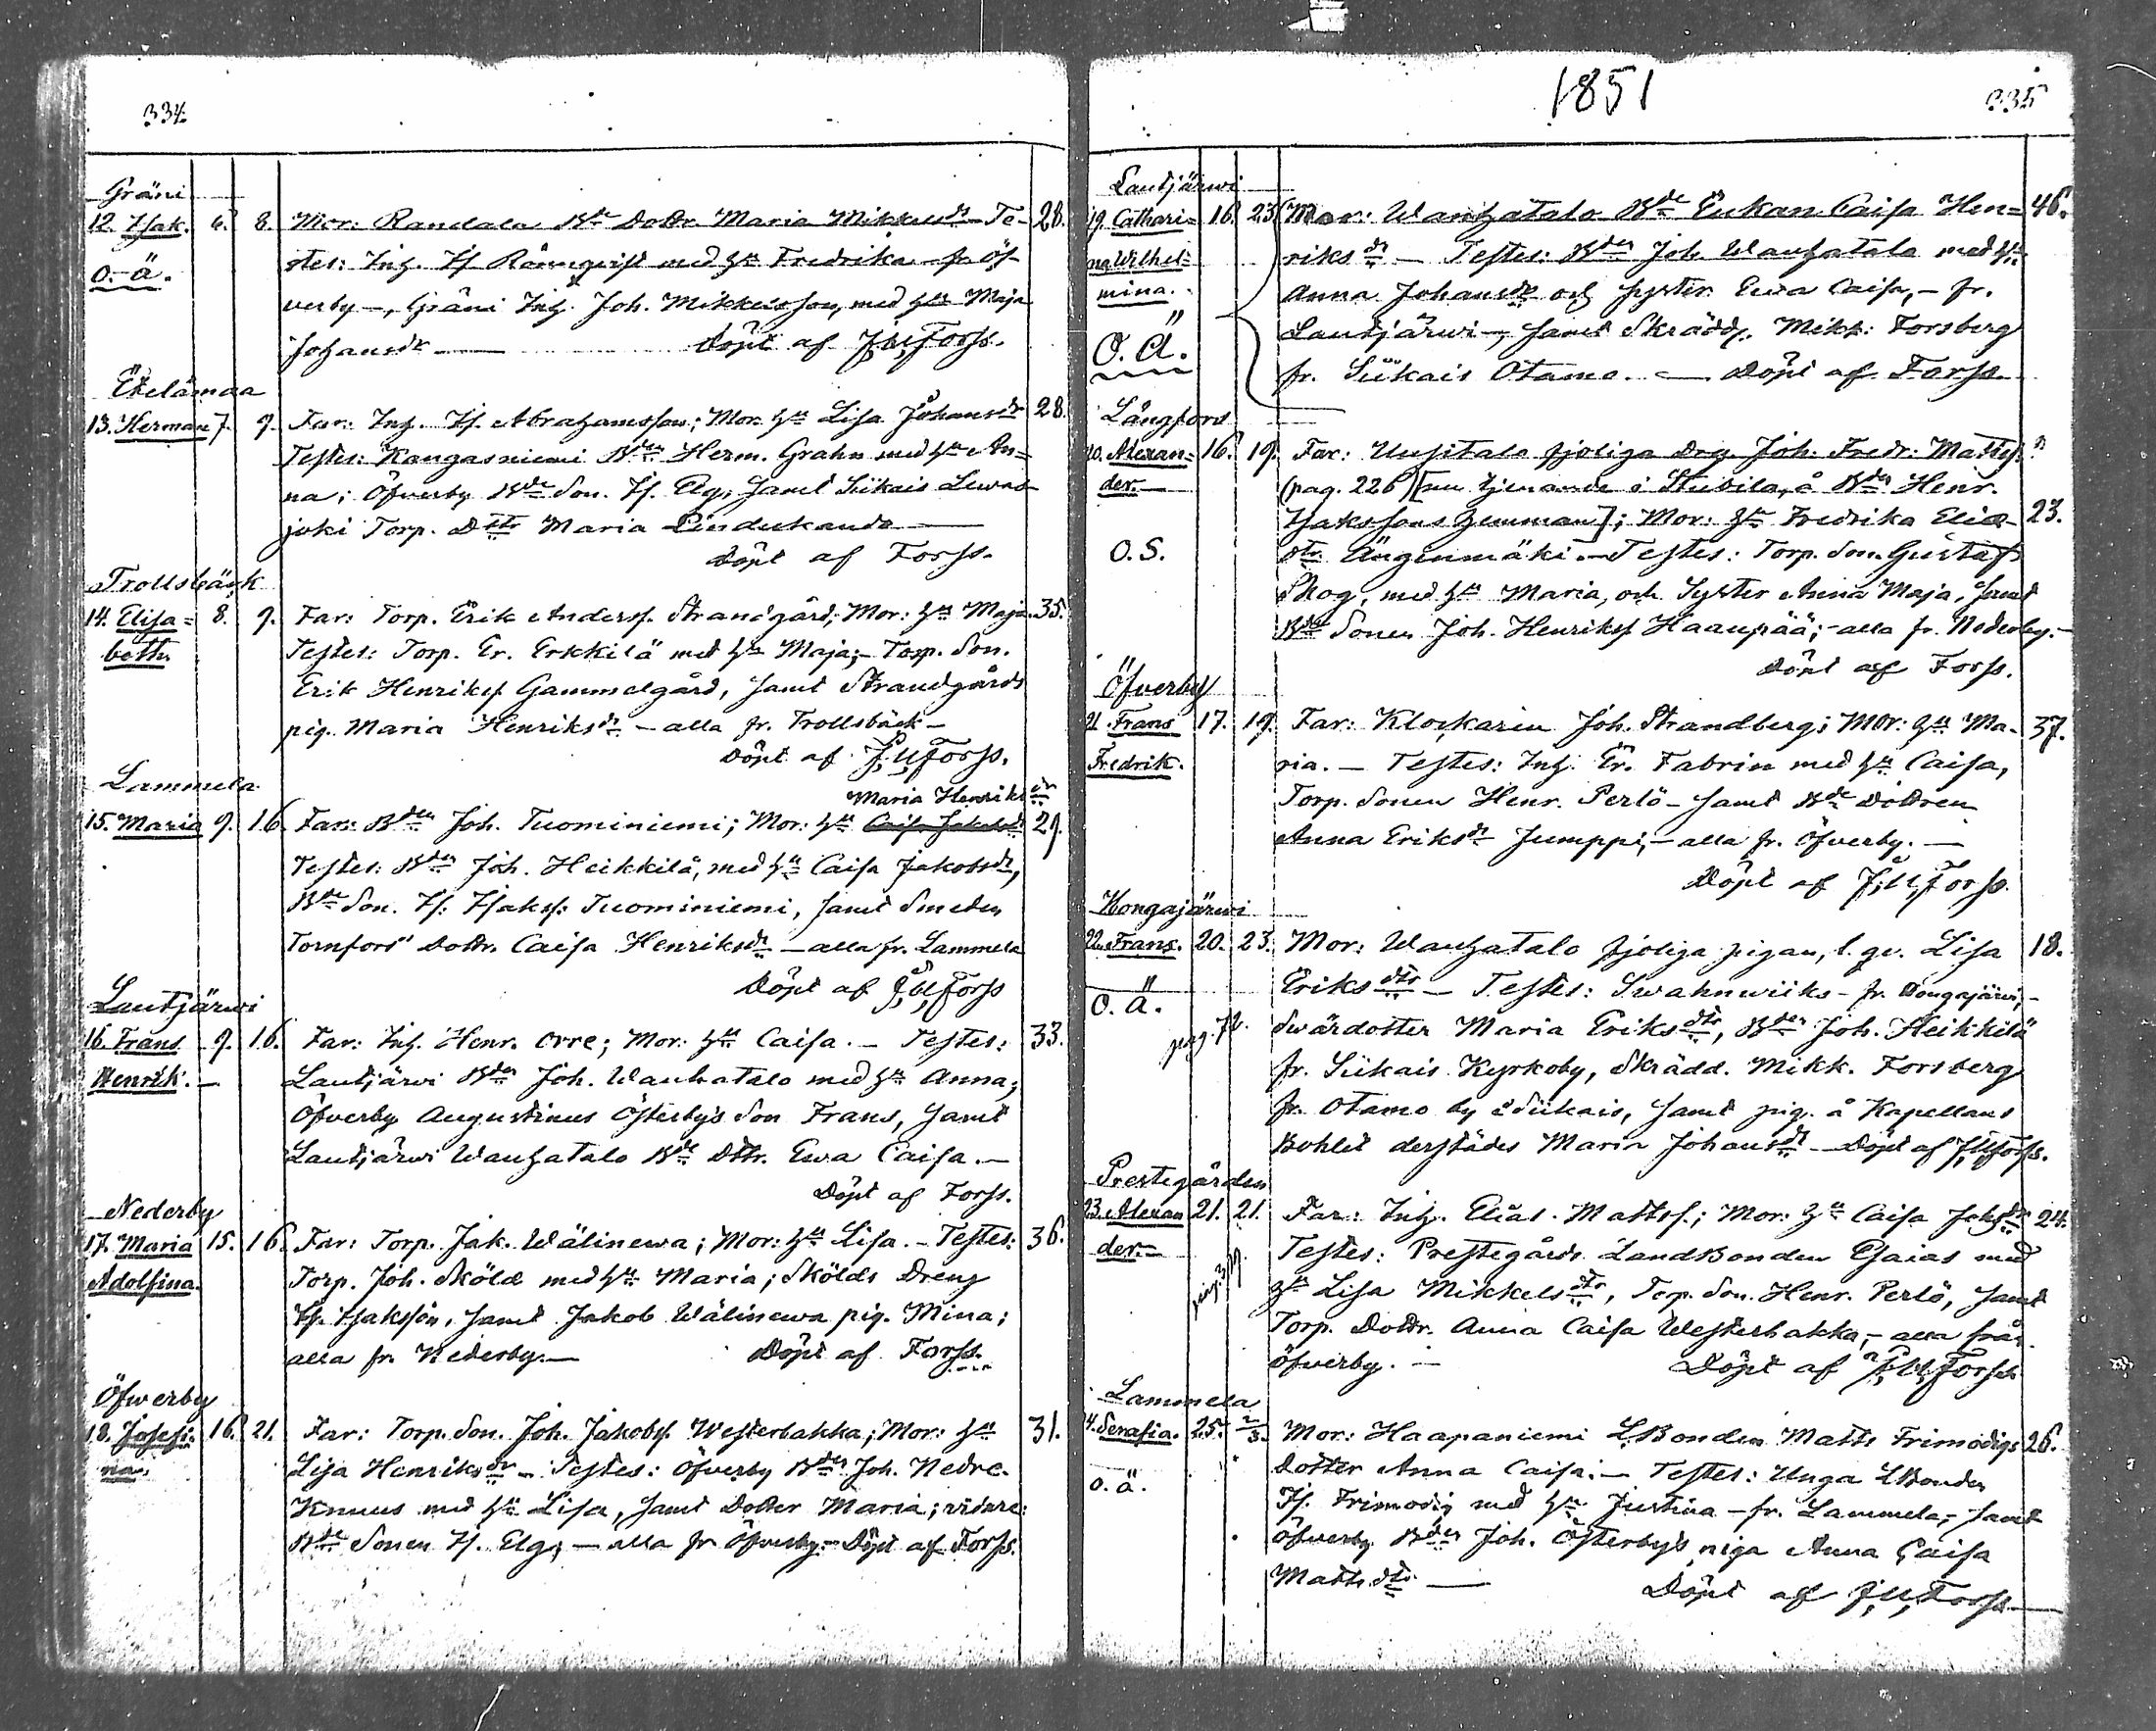 334.
Gräni
12. Isak. 6. 8. Mor: Randala Bde Dottr. Maria Mikkelsdr - Te- 28.
O. ä. stes: Inh. Is. Rönnqvist med hu Fredrika fr. Öf-
verby -, Gräni Inh. Joh. Mikkelsson, med hu Maja
Johansdr — Döpt af J,U,Forss.
Etelämaa
13. Herman 7. 9. Far: Inh. Is. Abrahamsson; Mor. hu Lisa Johansdr 28.
Testes: Kangasniemi Bden Herm. Grahn med hu An=
na; Öfverby Bde Son. Is. Elg; samt Siikais Lewas-
joki Torp. Dttr Maria —
Döpt af Forss.
Trollsbäck
14. Elisa= 8. 9. Far: Torp. Erik Anderss. Strandgård; Mor: hu Maja. 35.
beth. Testes: Torp. Er. Erkkilä med hu Maja; - Torp. Son.
Erik Henrikss Gammelgård, samt Strandgårds
pig. Maria Henriksdr - alla fr. Trollsbäck -
Döpt af J,U,Forss.
Lammela
Maria Henriksdr
15. Maria 9. 16. Far: Bden Joh. Tuominiemi; Mor: hu Caisa Jakobsdr 29.
Testes: Bden Joh. Heikkilä, med hu Caisa Jakobsdr,
Bde Son. Is: Isakss: Tuominiemi, samt Smeden
Tornfors' Dottr. Caisa Henriksdr - alla fr. Lammela
Döpt af J,U,Forss
Lautjärwi
16. Frans 9. 16. Far: Inh. Henr. Orre; Mor: hu Caisa. - Testes: 33.
Henrik. - Lautjärwi Bden Joh. Wanhatalo med hu Anna;
Öfverby Augustinus Österby's Son Frans, samt
Lautjärwi Wanhatalo Bde Dttr. Ewa Caisa. -
Döpt af Forss.
Nederby
17. Maria 15. 16. Far: Torp. Jak. Wälinewa; Mor: hu Lisa. - Testes: 36.
Adolfina. Torp. Joh. Sköld med hu Maria; Skölds Dreng
Is. Isaksson, samt Jakob Wälinewa pig. Mina;
alla fr. Nederby. — Döpt af Forss.
Öfwerby
18. Josefi- 16. 21. Far: Torp. Son. Joh. Jakobss. Westerbakka; Mor: hu 31.
na. Lisa Henriksdr - Testes: Öfverby Bden Joh. Nedre-
Knuus med hu Lisa, samt Dotter Maria; vidare:
Bde Sonen Is. Elg, - alla fr Öfverby. - Döpt af Forss.
1851
335
Lautjärwi
19. Cathari= 16. 23. Mor: Wanhatalo Bde Enkan Caisa Hen= 46.
na Wilhel= riksdr - Testes: Bden Joh. Wanhatalo med hu
mina. Anna Johansdr och syster Ewa Caisa, - fr.
O. Ä. Lautjärwi -, samt Skrädd. Mikk: Forsberg
fr. Siikais Otamo. — Döpt af Forss.
Långfors
20. Alexan= 16. 19. Far: Uusitalo fjoliga Drg Joh. Fredr: Mattss.
der. — (pag. 226) [nu tjenande i Stuvila, å Bden Henr.
Isakssons hemman]; Mor: hu Fredrika Elias- 23.
O. S. dtr Ängenmäki. - Testes: Torp. Son. Gustaf
Skog, med hu Maria, och Syster Anna Maja, samt
Bde Sonen Joh. Henrikss Haanpää; - alla fr. Nederby. -
Döpt af Forss.
Öfverby
21. Frans 17. 19. Far: Klockaren Joh. Strandberg; Mor: hu Ma- 37.
Fredrik. ria. - Testes: Inh. Er. Fabrin med hu Caisa,
Torp. Sonen Henr. Perlö - samt Bde Dottren
Anna Eriksdr Jumppi, - alla fr. Öfverby. —
Döpt af J,U,Forss.
Hongajärwi
22. Frans. 20. 23. Mor: Wanhatalo fjoliga pigan, l. qv. Lisa 18.
O. ä. Eriksdtr - Testes: Swahnwiiks - fr. Hongajärwi, -
pag. 72. Swärdotter Maria Eriksdtr, Bden Joh. Heikkilä
fr. Siikais Kyrkoby, Skrädd. Mikk. Forsberg
fr. Otamo by i Siikais, samt pig. å Kapellans
Bohlet derstädes Maria Johansdr - Döpt af J,U,Forss.
Prestegården
23. Alexan 21. 21. Far: Inh. Elias Mattss.; Mor: hu Caisa Jaksdr 24.
der. - Testes: Prestegårds LandBonden Esaias med
hu Lisa Mikkelsdtr, Torp. Son. Henr. Perlö, samt
Torp. Dottr. Anna Caisa Westerbakka, - alla från
Öfverby. - Döpt af J,U,Forss.
Lammela
24. Serafia. 25. 2/3. Mor: Haapaniemi LBonden Matts Frimodigs 26.
O. ä. Dotter Anna Caisa: - Testes: Unga LBonden
Is. Frimodig med hu Justina - fr. Lammela, - samt
Öfverby Bden Joh. Österby's piga Anna Caisa
Mattsdtr — Döpt af J,U,Forss. —